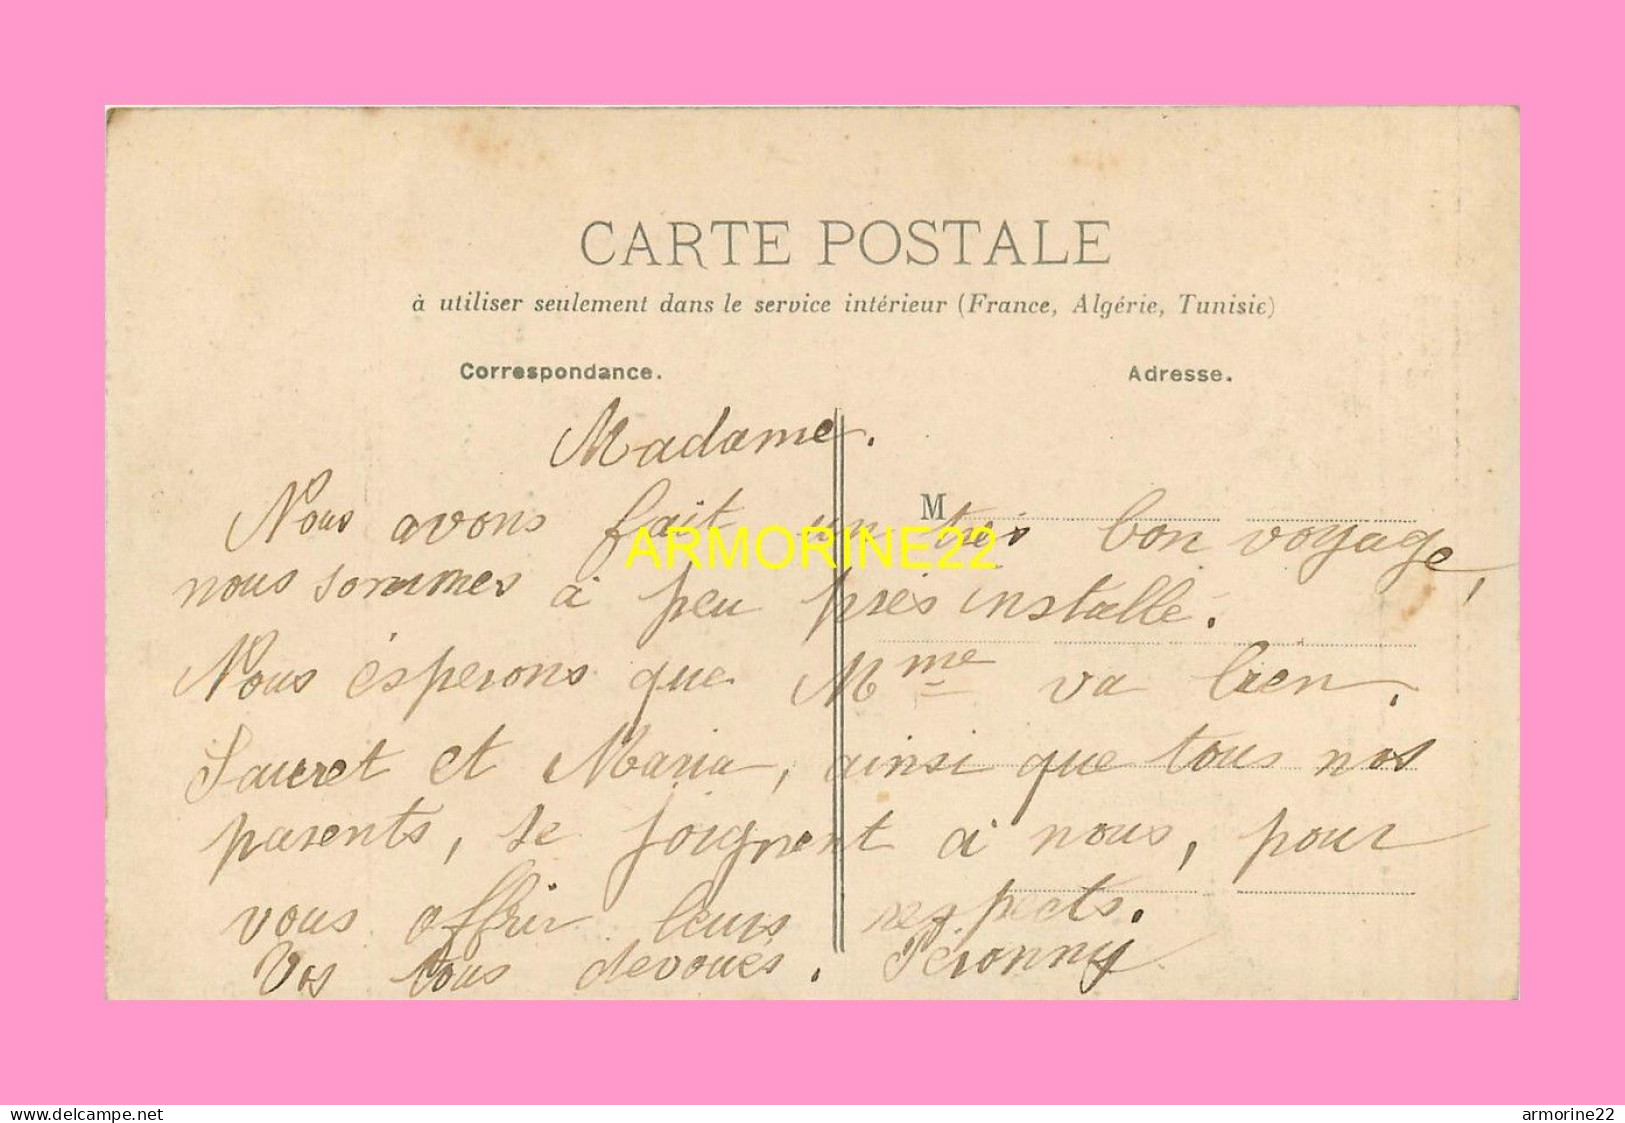 CARTE POSTALE
à utiliser seulement dans le service intérieur (France, Algérie, Tunisie)
Correspondance.
Adresse.
Madame.
M
Nous avons fait un très bon voyage,
ARMORINE22
nous sommes à peu près installé.
Nous ésperons que Mme va bien.
Sauret et Maria, ainsi que tous nos
parents, se joignent à nous, pour
vous offrir leurs respects.
Vos tous devoués. Péronny
www.delcampe.net
armorine22